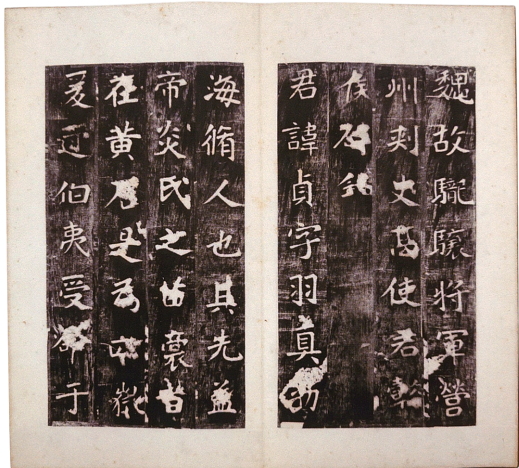 魏故䮾驤將軍營
州刾史高使君懿
侯碑銘
君諱貞字羽真勃
海脩人也其先蓋
帝炎氏之苗裔昔
在黃是為嶽
爰逮伯夷受命于